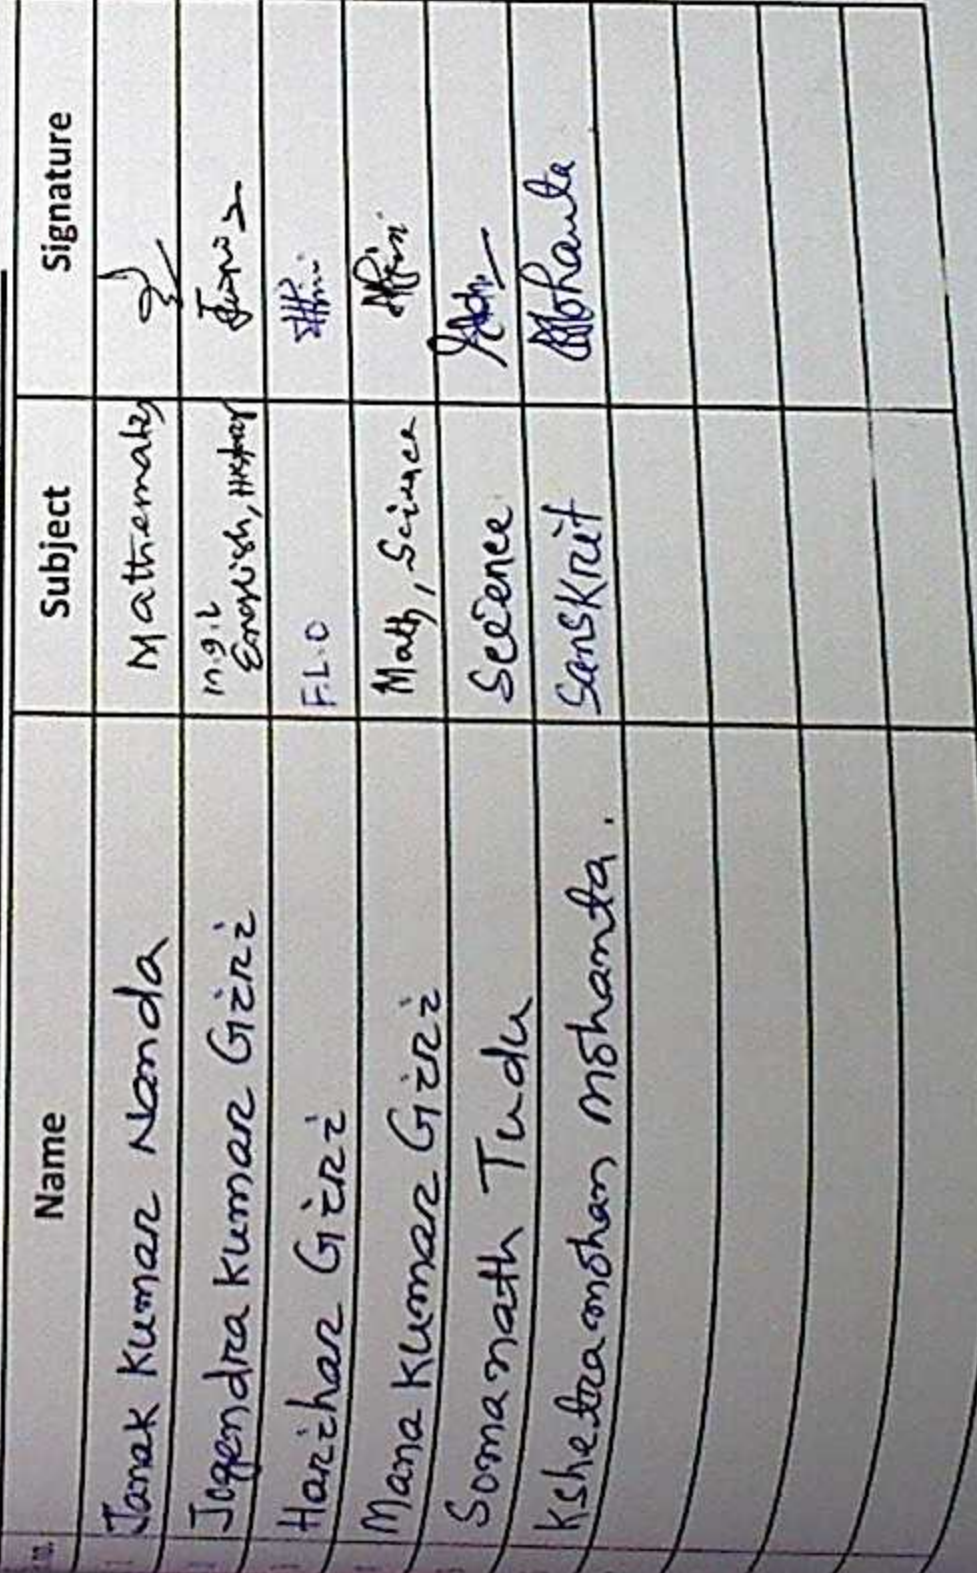 Name Subject Signature
Janak Kumar Nanda Mathematics
Jogendra Kumar Giri m.g.L English, History
Harihar Giri F.L.O
Mana Kumar Giri Math, Science
Somanath Tudu Science
Kshetramohan Mohanta. Sanskrit Mohanta